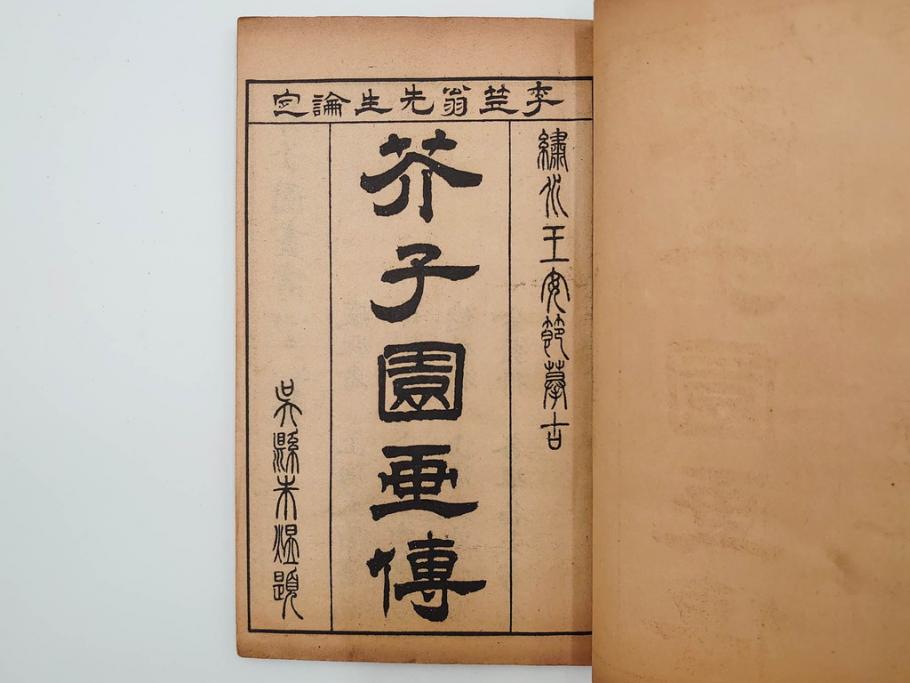 李笠翁先生論定
繡水王安節摹古
芥子園画傳
吳縣朱煴題